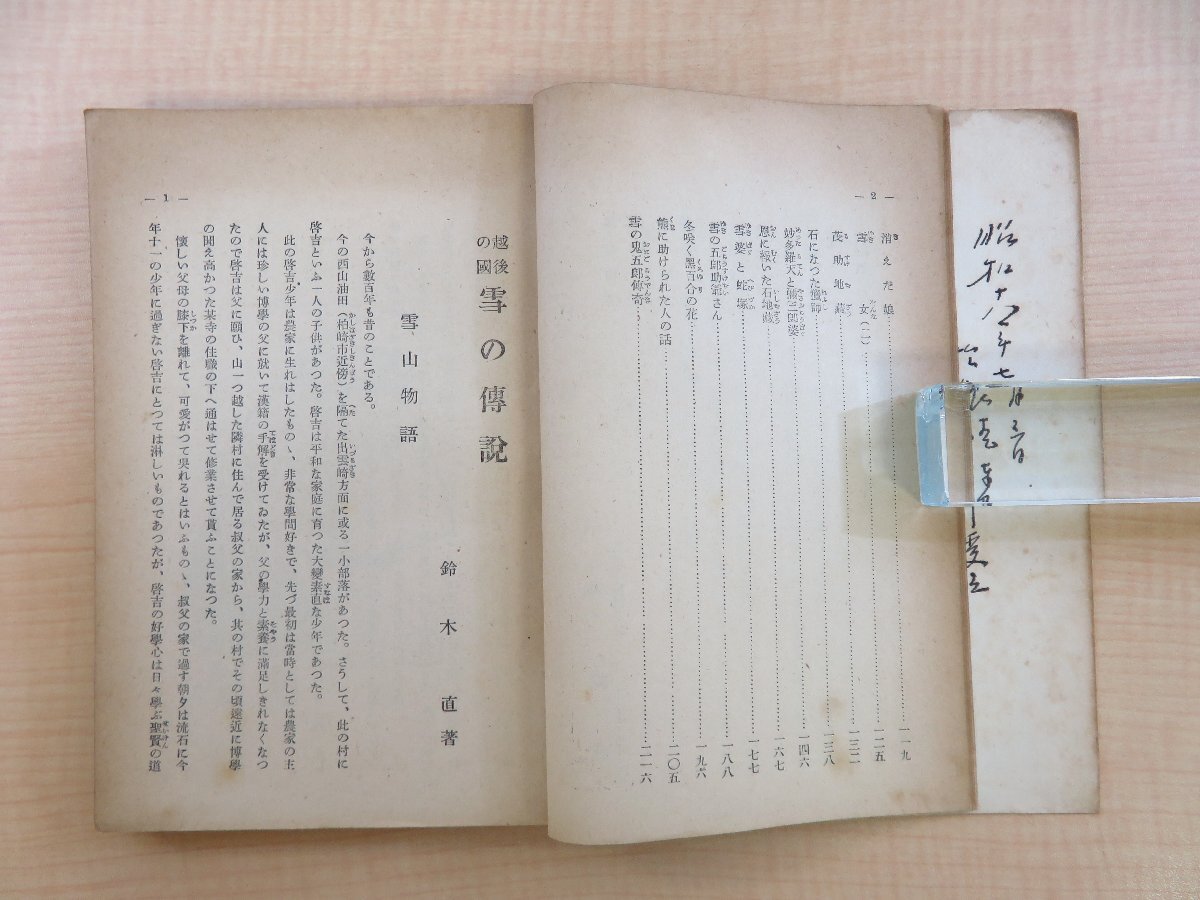 — 2 —
消えた娘……一一九
雪女(二)……一二五
茂助地藏……一三二
石になつた蜜師……一三八
妙多羅天と彌三郎婆……一四六
恩に報いた石地藏……一六七
雪婆と蛇塚……一七七
雪の五郎助爺さん……一八八
冬咲く黑百合の花……一九六
熊に助けられた人の話……二〇五
雪の鬼五郎傳奇……二一六
越後の國 雪の傳說
鈴木直著
雪山物語
今から數百年も昔のことである。
今の西山油田(柏崎市近傍)を隔てた出雲崎方面に或る一小部落があつた。さうして、此の村に
啓吉といふ一人の子供があつた。啓吉は平和な家庭に育つた大變素直な少年であつた。
此の啓吉少年は農家に生れはしたものゝ、非常な學問好きで、先づ最初は當時としては農家の主
人には珍しい博學の父に就いて漢籍の手解を受けてゐたが、父の學力と素養に滿足しきれなくなつ
たので啓吉は父に願ひ、山一つ越した隣村に住んで居る叔父の家から、其の村でその頃遠近に博學
の聞え高かつた某寺の住職の下へ通はせて修業させて貰ふことになつた。
懷しい父母の膝下を離れて、可愛がつて吳れるとはいふものゝ、叔父の家で過す朝夕は流石に今
年十一の少年に過ぎない啓吉にとつては淋しいものであつたが、啓吉の好學心は日々學ぶ聖賢の道
— 1 —